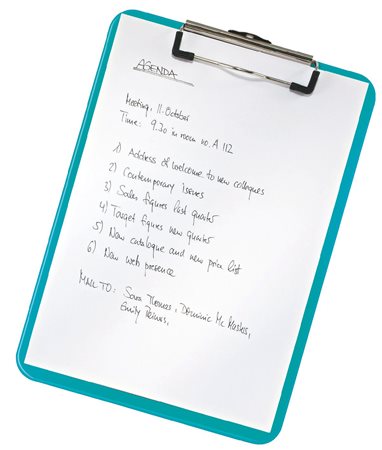 AGENDA
Meeting, 11. October
Time: 9.30 in room no. A 112
1) Address of welcome to new collegues
2) Contemporary issues
3) Sales figures last quarter
4) Target figures new quarter
5) New catalogue and new price list
6) New web presence
MAIL TO: Sara Thomas, Dominic Mc
Emily